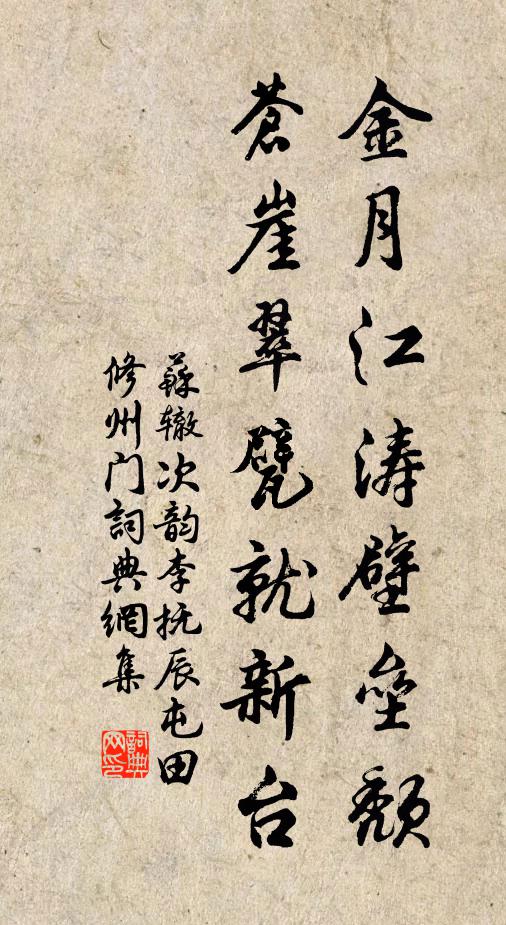 金月江涛壁垒颓
苍崖翠甓就新台
蘇辙次韵李抚辰屯田
修州门詞典網集
詞典网印